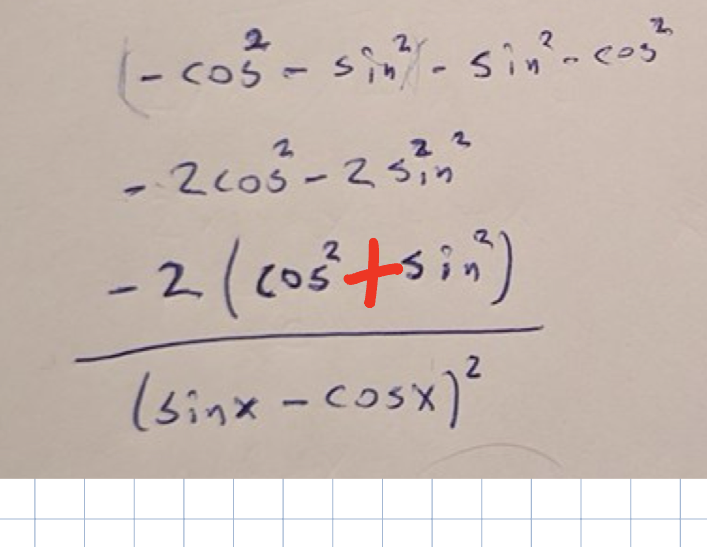 (- cos² - sin²) - sin² - cos²
- 2cos² - 2 s²in²
- 2 (cos² + sin²)
(sinx - cosx)²